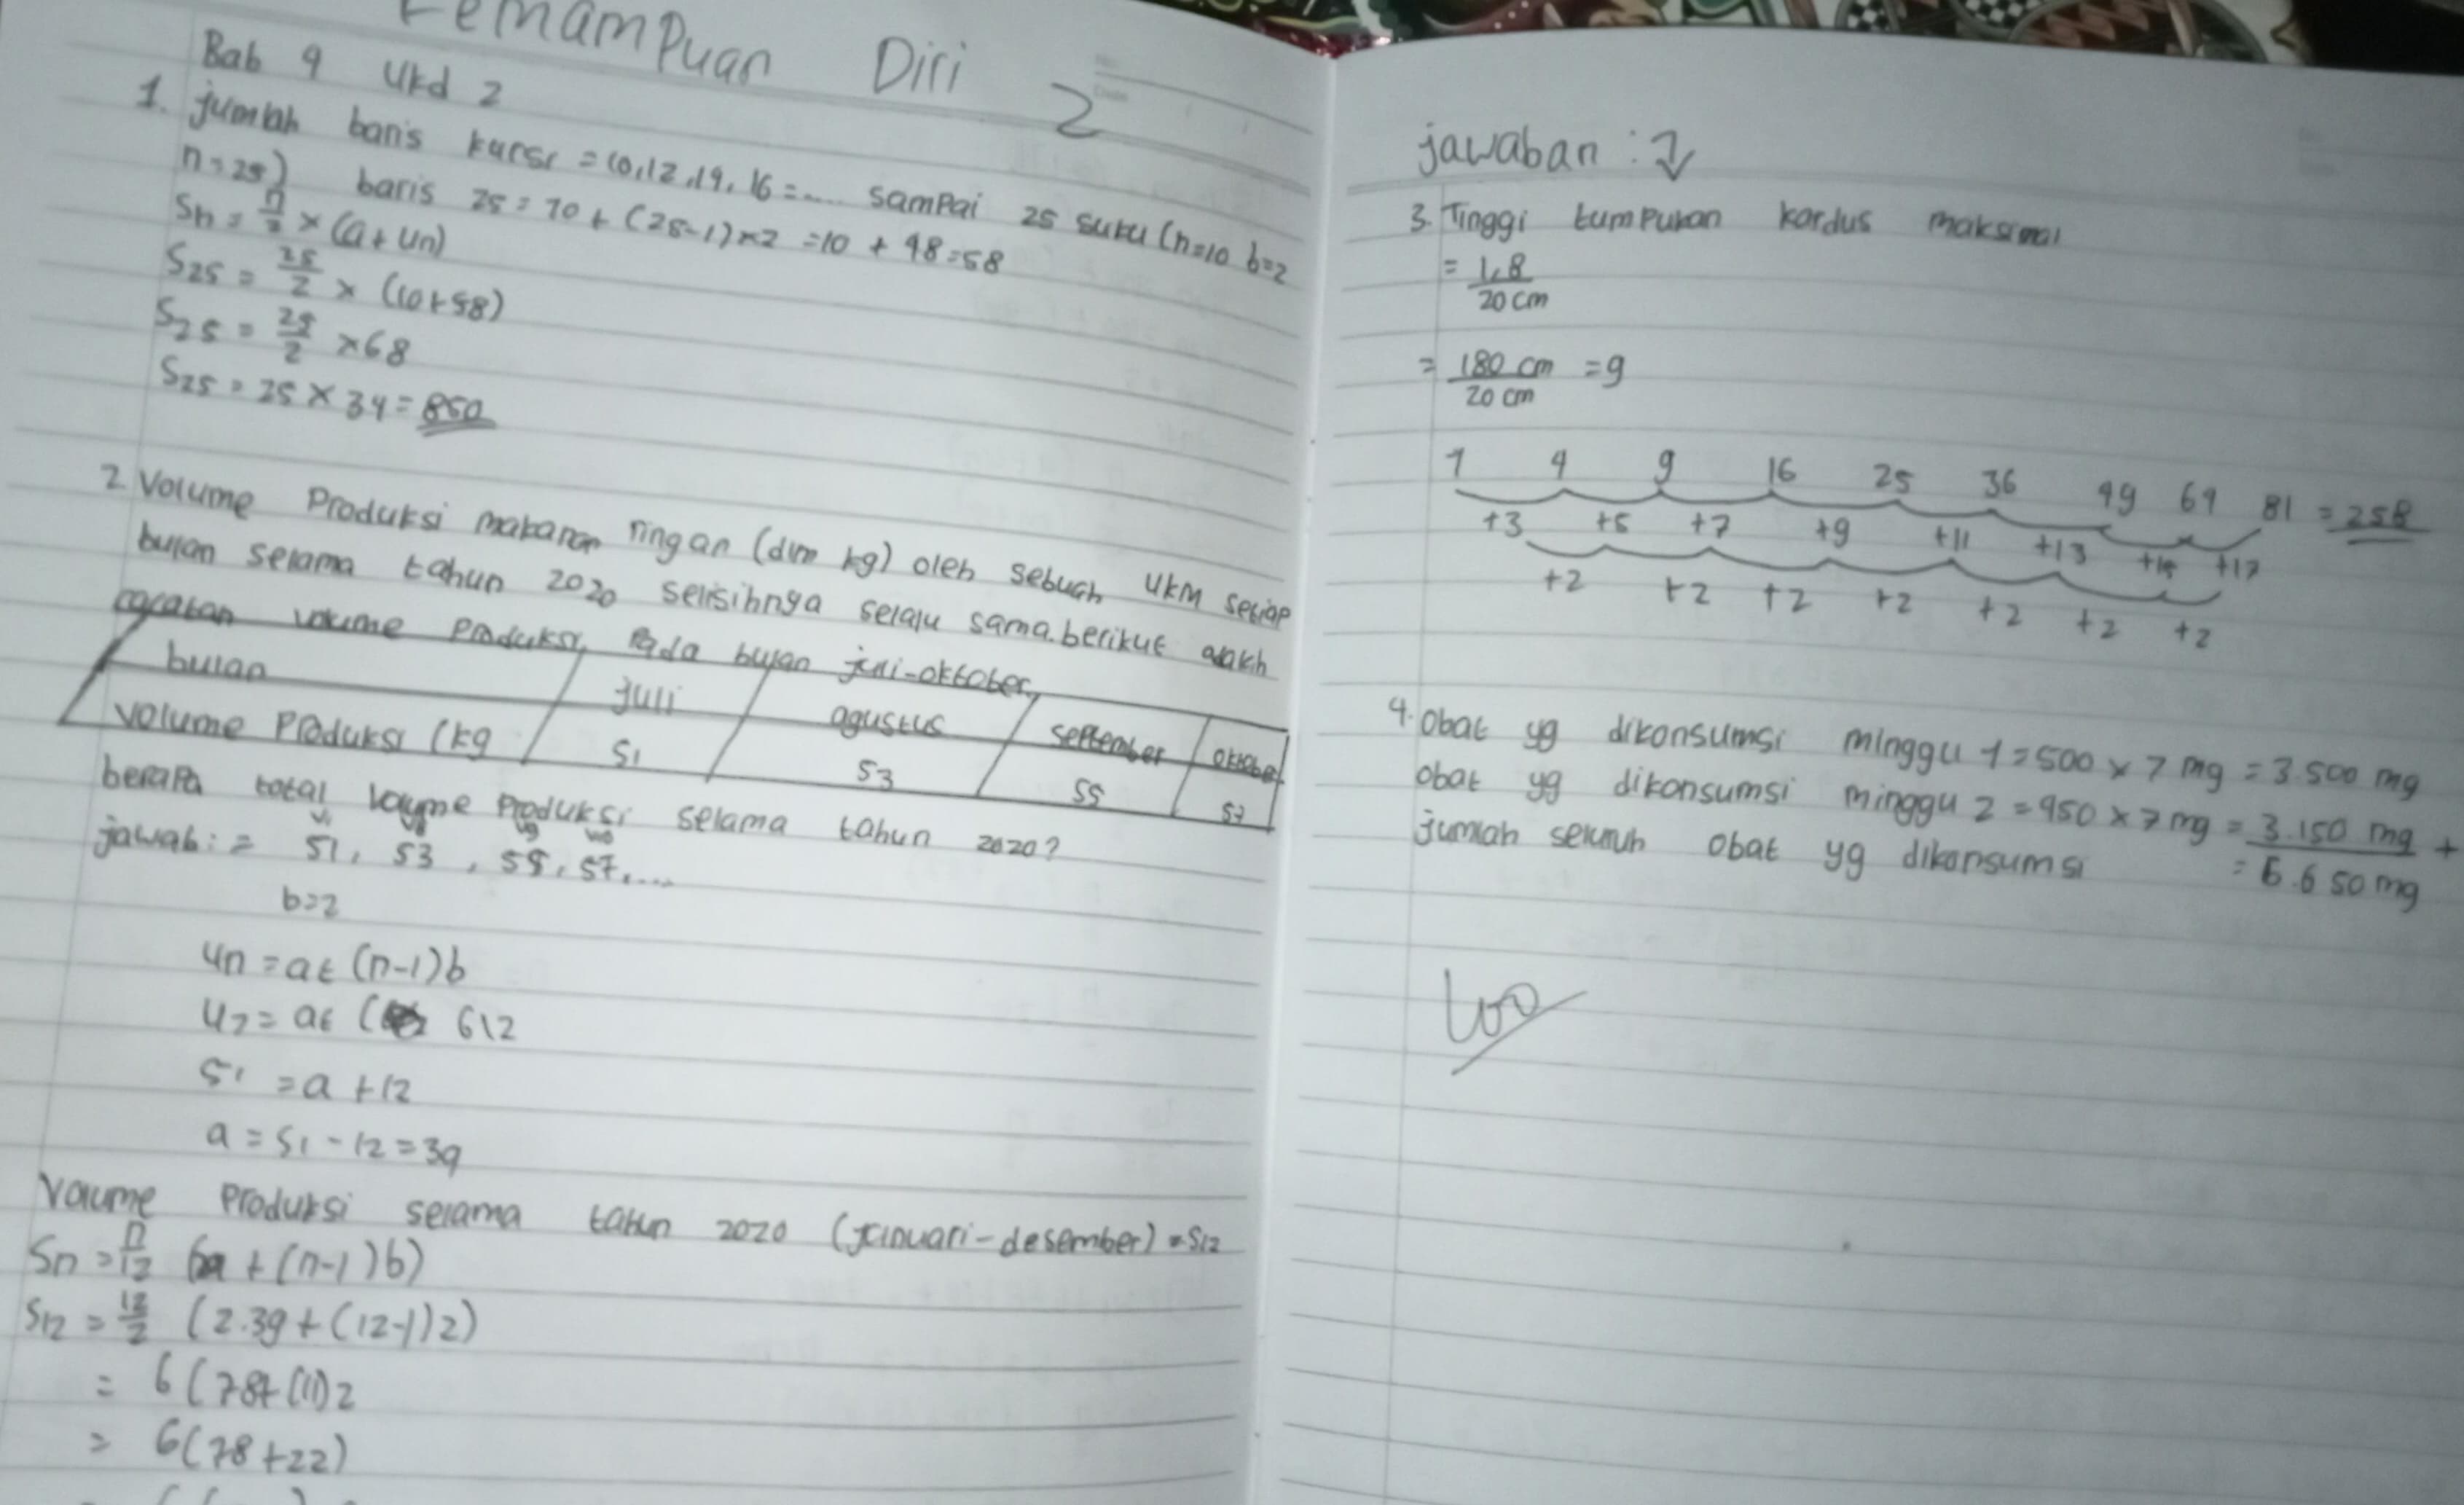 Kemampuan Diri 2
Bab 9 Ukd 2
1. jumlah baris kursi = 10, 12, 14, 16 = .... sampai 25 suku (n=10 b=2
n = 25) baris 25 = 10 + (25-1) x 2 = 10 + 48 = 58
Sn = n/2 x (a + Un)
S25 = 25/2 x (10+58)
S25 = 25/2 x 68
S25 = 25 x 34 = 850
2. Volume Produksi makanan ringan (dlm kg) oleh sebuah UKM setiap
bulan selama tahun 2020 selisihnya selalu sama. berikut adalah
catatan volume produksi pada bulan juli-oktober
bulan juli agustus september oktober
volume Produksi (kg 51 53 55 57
berapa total volume produksi selama tahun 2020?
jawab: = 51, 53, 55, 57, ....
b=2
Un = a+ (n-1)b
U7 = a+ ( 6)2
51 = a + 12
a = 51 - 12 = 39
Volume Produksi selama tahun 2020 (januari-desember) = S12
Sn = n/12 (2a + (n-1)b)
S12 = 12/2 (2.39 + (12-1)2)
= 6(78+(11)2
= 6(78+22)
jawaban :
3. Tinggi tumpukan kardus maksimal
= 1,8 / 20 cm
= 180 cm / 20 cm = 9
1 4 9 16 25 36 49 64 81 = 258
+3 +5 +7 +9 +11 +13 +15 +17
+2 +2 +2 +2 +2 +2 +2
4. Obat yg dikonsumsi minggu 1 = 500 x 7 mg = 3.500 mg
obat yg dikonsumsi minggu 2 = 450 x 7 mg = 3.150 mg +
jumlah seluruh obat yg dikonsumsi = 6.650 mg
100